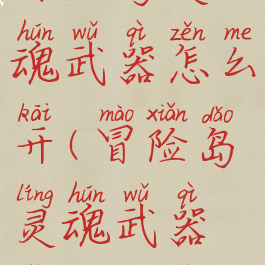 hún wǔ qì zěn me
魂武器怎么
kāi mào xiǎn dǎo
开(冒险岛
líng hún wǔ qì
灵魂武器